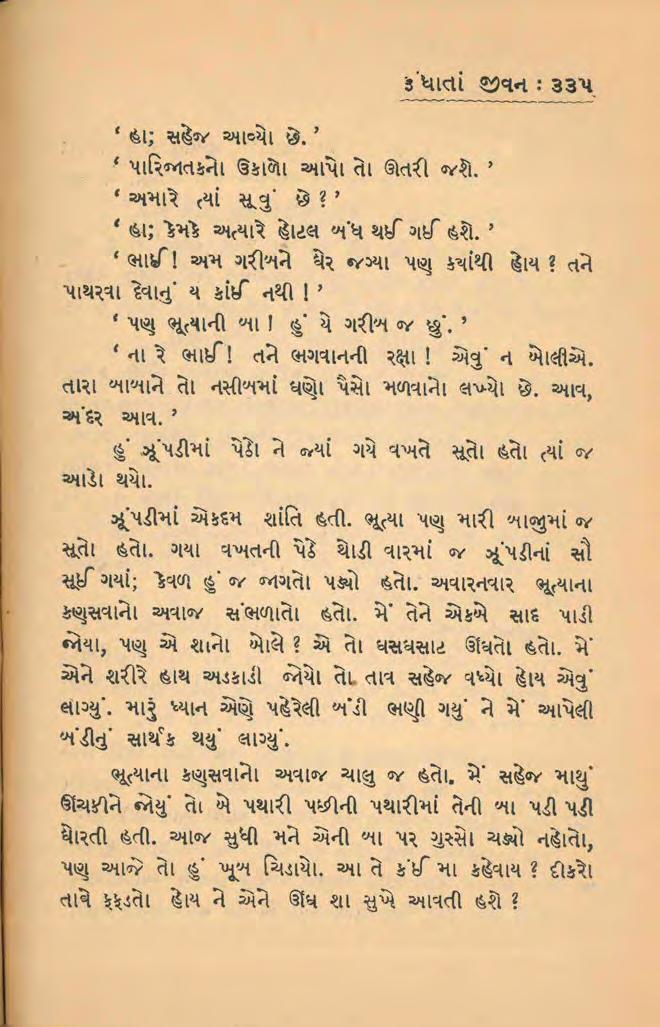 રૂંધાતાં જીવન : ૩૩૫
‘ હા; સહેજ આવ્યો છે. ’
‘ પારિજાતકનો ઉકાળો આપો તો ઊતરી જશે. ’
‘ અમારે ત્યાં સૂવું છે ? ’
‘ હા; કેમકે અત્યારે હોટલ બંધ થઈ ગઈ હશે. ’
‘ ભાઈ ! અમ ગરીબને ઘેર જગ્યા પણ ક્યાંથી હોય ? તને
પાથરવા દેવાનું ય કાંઈ નથી ! ’
‘ પણ ભૂત્યાની બા ! હું યે ગરીબ જ છું. ’
‘ ના રે ભાઈ ! તને ભગવાનની રક્ષા ! એવું ન બોલીએ.
તારા બાબાને તો નસીબમાં ઘણો પૈસો મળવાનો લખ્યો છે. આવ,
અંદર આવ. ’
હું ઝૂંપડીમાં પેઠો ને જ્યાં ગયે વખતે સૂતો હતો ત્યાં જ
આડો થયો.
ઝૂંપડીમાં એકદમ શાંતિ હતી. ભૂત્યા પણ મારી બાજુમાં જ
સૂતો હતો. ગયા વખતની પેઠે થોડી વારમાં જ ઝૂંપડીનાં સૌ
સૂઈ ગયાં; કેવળ હું જ જાગતો પડ્યો હતો. અવારનવાર ભૂત્યાના
કણસવાનો અવાજ સંભળાતો હતો. મેં તેને એકબે સાદ પાડી
જોયા, પણ એ શાનો બોલે ? એ તો ઘસઘસાટ ઊંઘતો હતો. મેં
એને શરીરે હાથ અડકાડી જોયો તો તાવ સહેજ વધ્યો હોય એવું
લાગ્યું. મારું ધ્યાન એણે પહેરેલી બંડી ભણી ગયું ને મેં આપેલી
બંડીનું સાર્થક થયું લાગ્યું.
ભૂત્યાના કણસવાનો અવાજ ચાલુ જ હતો. મેં સહેજ માથું
ઊંચકીને જોયું તો બે પથારી પછીની પથારીમાં તેની બા પડી પડી
ઘોરતી હતી. આજ સુધી મને એની બા પર ગુસ્સો ચડ્યો નહોતો,
પણ આજે તો હું ખૂબ ચિડાયો. આ તે કંઈ મા કહેવાય ? દીકરો
તાવે ફફડતો હોય ને એને ઊંઘ શા સુખે આવતી હશે ?